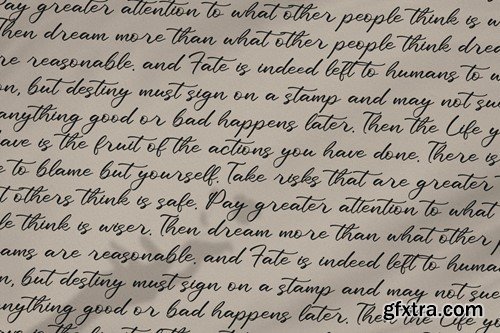 Pay greater attention to what other people think is w
Then dream more than what other people think drea
re reasonable. and Fate is indeed left to humans to u
on, but destiny must sign on a stamp and may not sue
anything good or bad happens later. Then the Life y
have is the fruit of the actions you have done. There is
e to blame but yourself. Take risks that are greater
t others think is safe. Pay greater attention to what
le think is wiser. Then dream more than what other p
ams are reasonable. and Fate is indeed left to huma
n, but destiny must sign on a stamp and may not sue
anything good or bad happens later. Then the Life
gfxtra.com